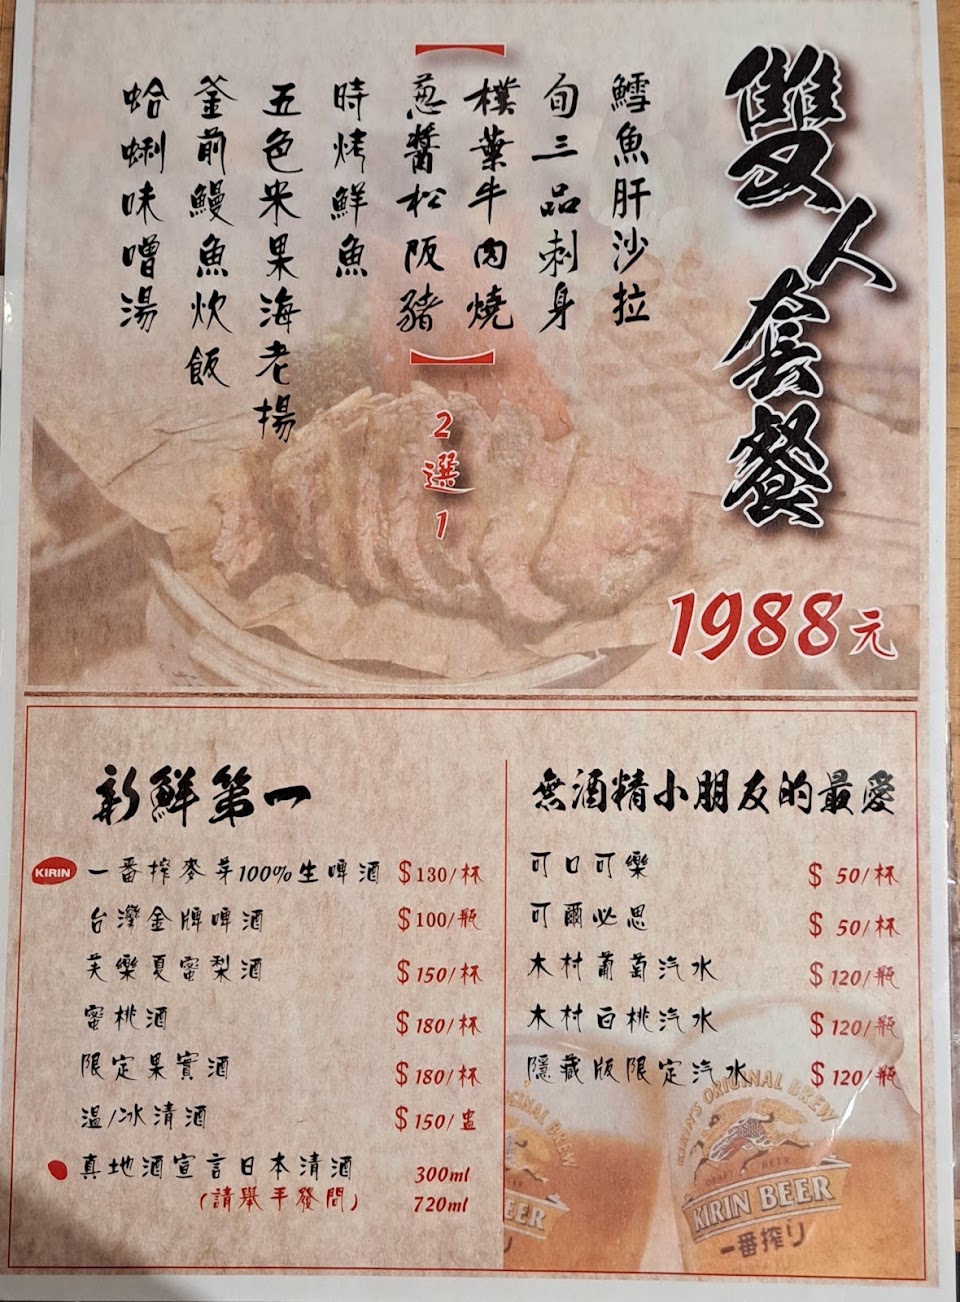 雙人套餐
1988元
鱈魚肝沙拉
旬三品刺身
【樸葉牛肉燒
蔥醬松阪豬】
2選1
時烤鮮魚
五色米果海老揚
釜前鰻魚炊飯
蛤蜊味噌湯
新鮮第一
KIRIN 一番搾麥芽100%生啤酒 $130/杯
台灣金牌啤酒 $100/瓶
芙樂夏蜜梨酒 $150/杯
蜜桃酒 $180/杯
限定果實酒 $180/杯
溫/冰清酒 $150/盅
真地酒宣言日本清酒 300ml
(請舉手發問) 720ml
無酒精小朋友的最愛
可口可樂 $ 50/杯
可爾必思 $ 50/杯
木村葡萄汽水 $120/瓶
木村白桃汽水 $120/瓶
隱藏版限定汽水 $120/瓶
KIRIN'S ORIGINAL BREW
DRAFT BEER
KIRIN BEER
一番搾り